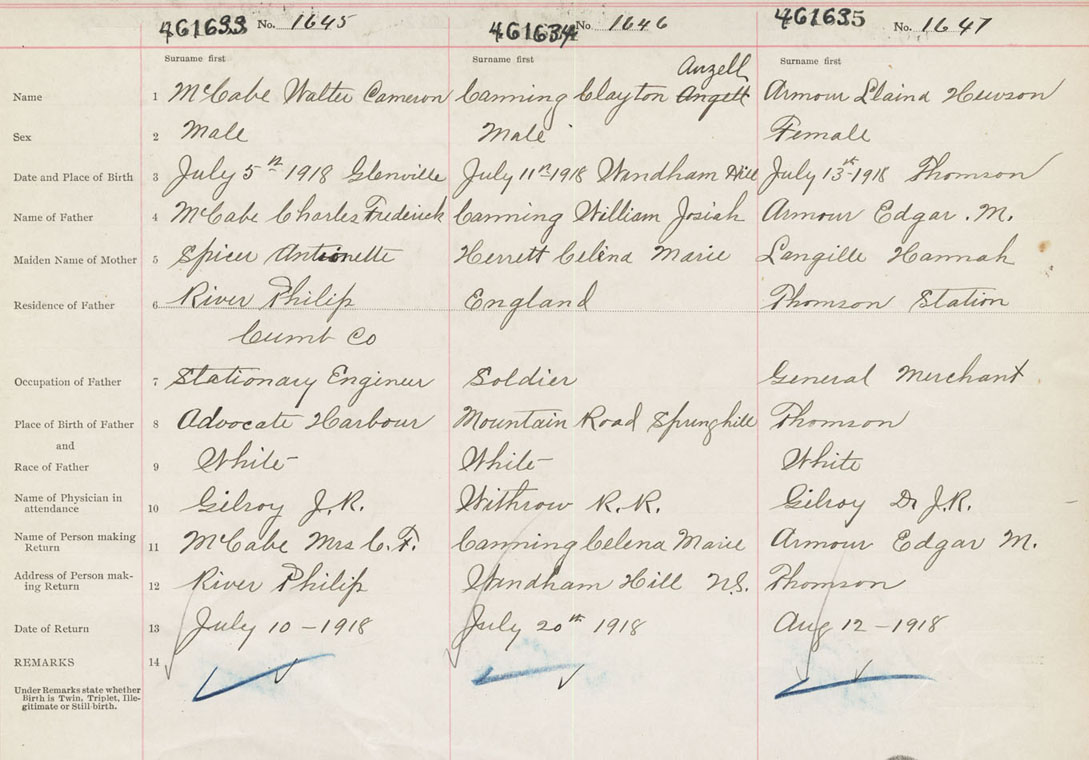 461633 No. 1645 461634 No 1646 461635 No. 1647
Surname first Surname first Surname first
Anzell
Name 1 McCabe Walter Cameron Canning Clayton Angett Armour Llaind Hewson
Sex 2 Male Male Female
Date and Place of Birth 3 July 5th 1918 Glenville July 11th 1918 Wandham Hill July 13th 1918 Thomson
Name of Father 4 McCabe Charles Frederick Canning William Josiah Armour Edgar . M.
Maiden Name of Mother 5 Spicer Antionette Herrett Celina Marie Langille Hannah
Residence of Father 6 River Philip England Thomson Station
Cumb Co
Occupation of Father 7 Stationary Engineer Soldier General Merchant
Place of Birth of Father 8 Advocate Harbour Mountain Road Springhill Thomson
and
Race of Father 9 White White White
Name of Physician in
attendance 10 Gilroy J.R. Withrow R.R. Gilroy Dr J.R.
Name of Person making
Return 11 McCabe Mrs C. F. Canning Celena Marie Armour Edgar M.
Address of Person mak-
ing Return 12 River Philip Wandham Hill N.S. Thomson
Date of Return 13 July 10 - 1918 July 20th 1918 Aug 12 - 1918
REMARKS 14
Under Remarks state whether
Birth is Twin, Triplet, Ille-
gitimate or Still-birth.